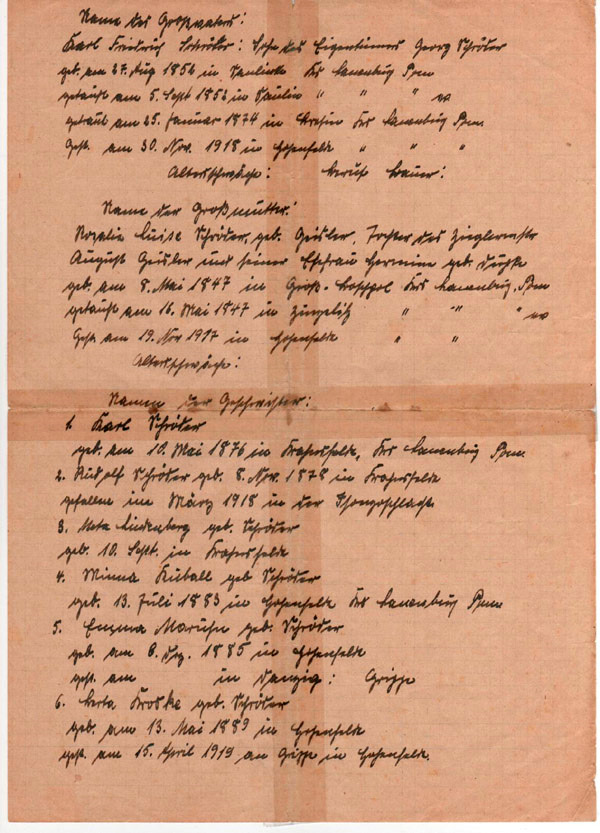 Name des Großvaters:
Karl Friedrich Schröder: Sohn des Eigentümers Georg Schröder
geb. am 27. Aug 1852 in Krs Lauenburg Pom
getauft am 5. Sept 1852 in " " "
getraut am 25. Januar 1874 in Krs Lauenburg Pom.
Gest. am 30. Nov. 1918 in Hohenfelde " " "
Altersschwäche: Beruf Bauer:
Name der Großmutter:
Rosalie Luise Schröder, geb. Geisler, Tochter des Zieglermstr
August Geisler und seiner Ehefrau Hermine geb.
geb. am 8. Mai 1847 in Groß-Boschpol Krs Lauenburg, Pom
getauft am 16. Mai 1847 in " " "
Gest am 19. Nov 1917 in Hohenfelde " "
Altersschwäche:
Namen der Geschwister:
1. Karl Schröder
geb. am 10. Mai 1876 in Krs Lauenburg Pom.
2. Rudolf Schröder geb. 8. Nov. 1878 in
gefallen im März 1918 in der
3. Meta Lindenberg geb. Schröder
geb. 10. Sept. in
4. Minna Kuball geb Schröder
geb. 13. Juli 1883 in Hohenfelde Krs Lauenburg Pom
5. Emma geb. Schröder
geb. am 6. Dez. 1885 in Hohenfelde
gest. am in Danzig: Grippe
6. Berta geb. Schröder
geb. am 13. Mai 1889 in Hohenfelde
gest. am 15. April 1919 an Grippe in Hohenfelde.